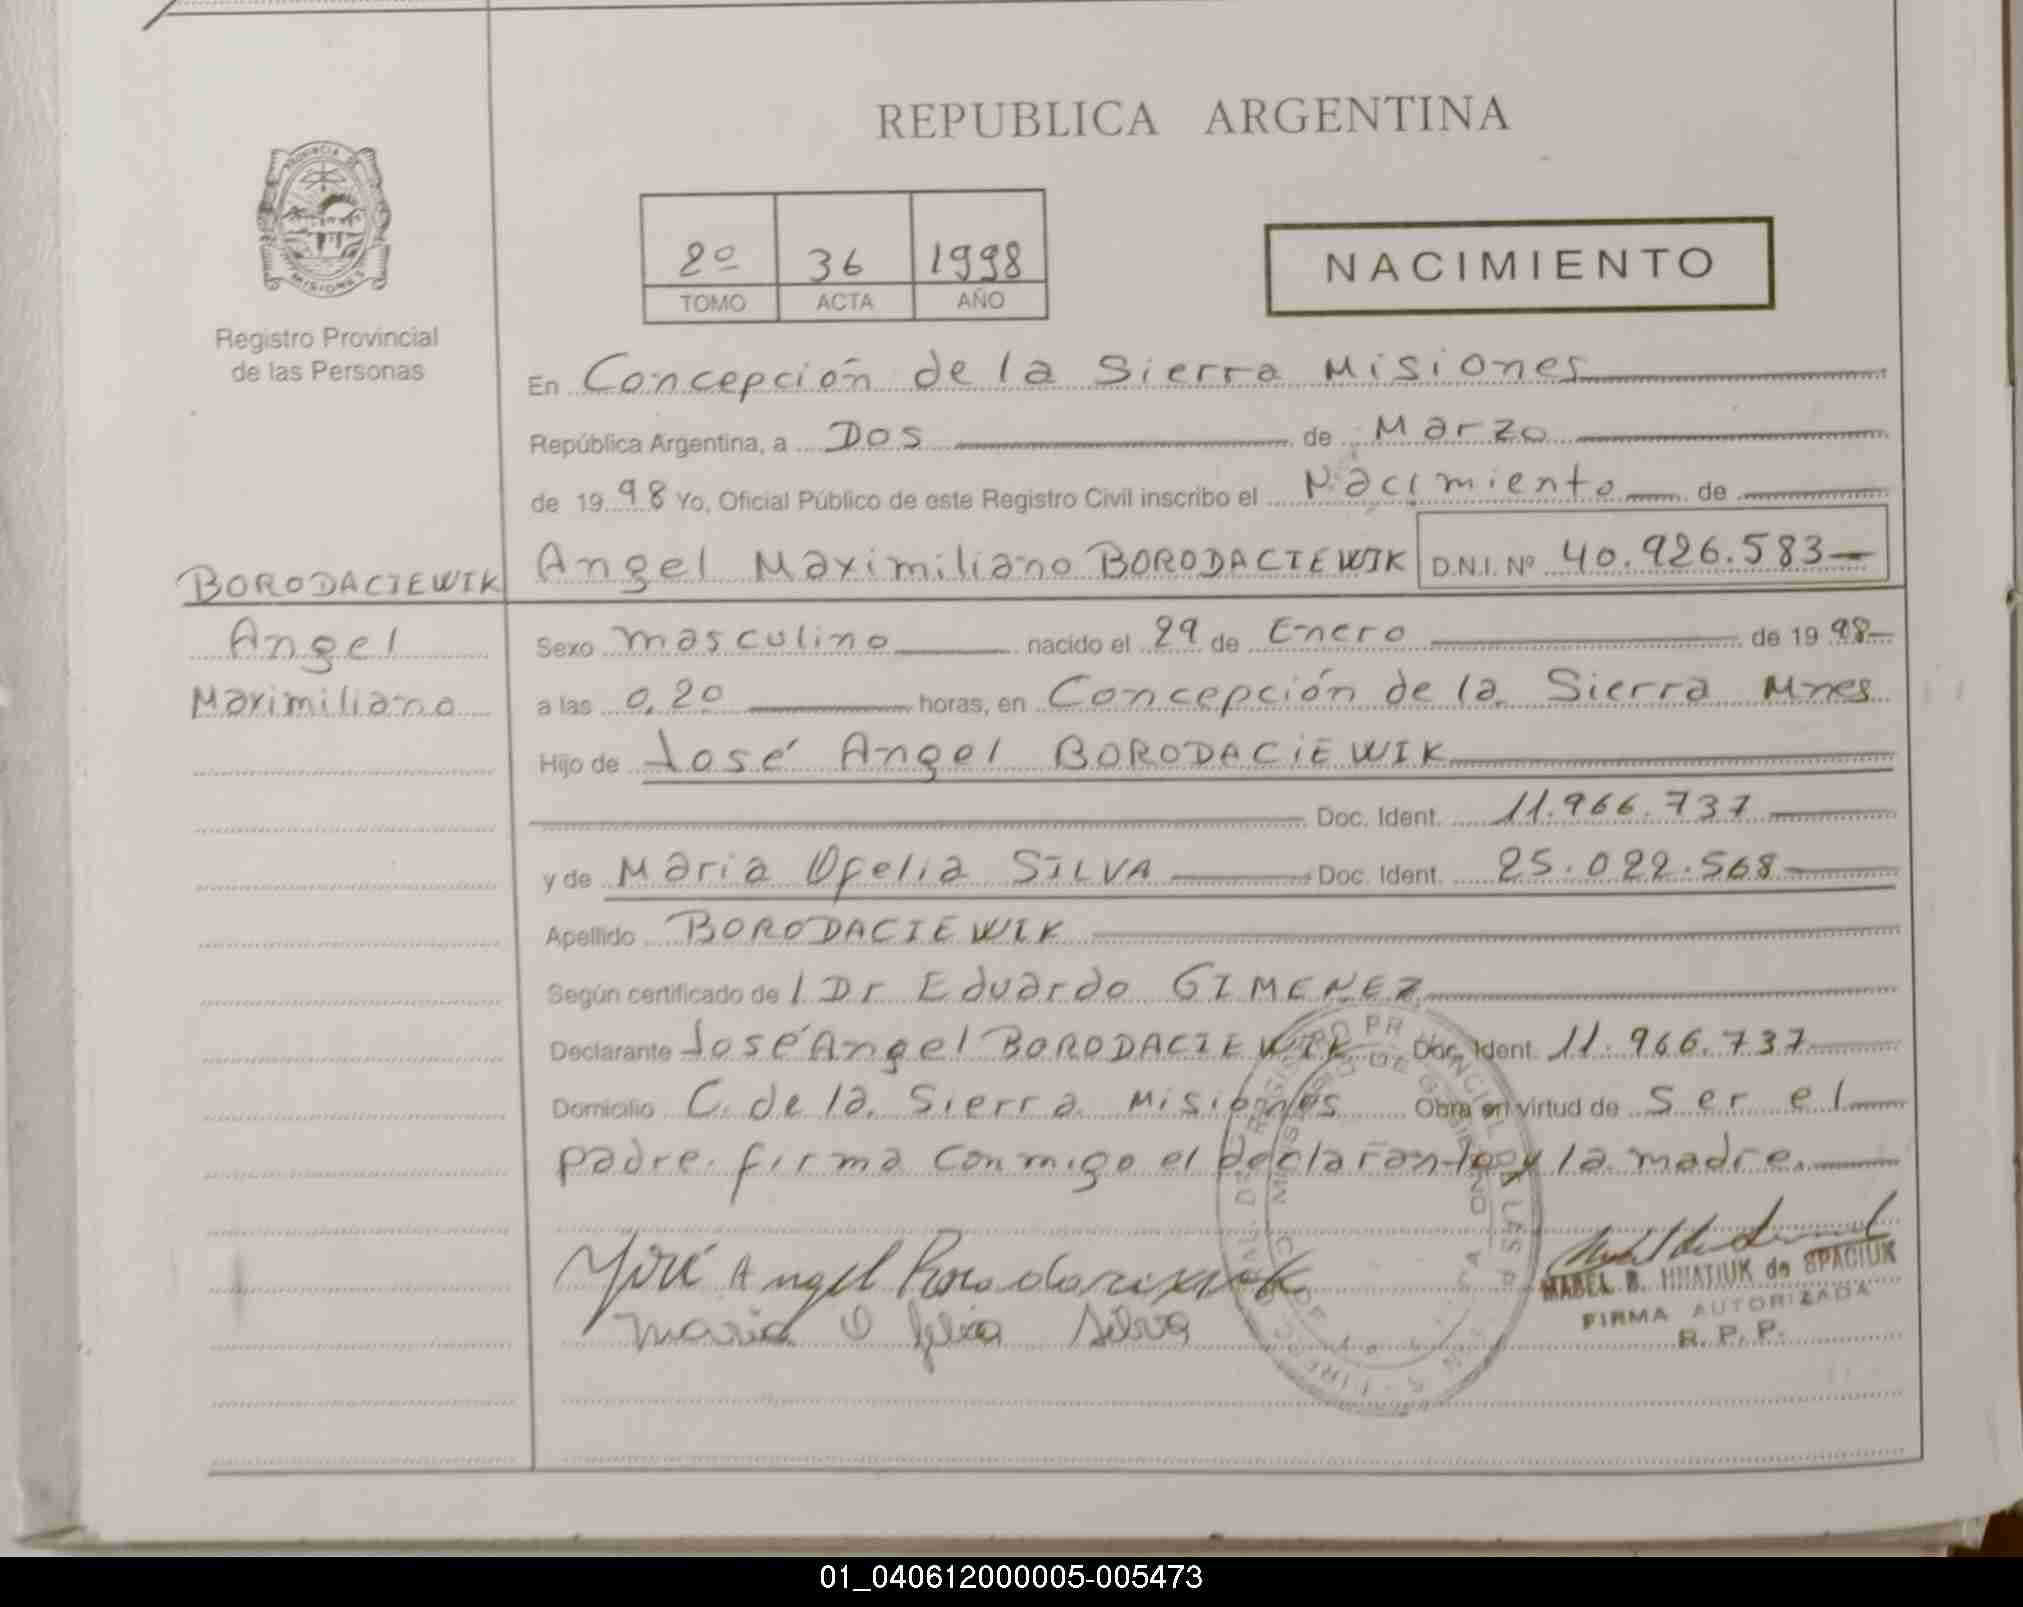 REPUBLICA ARGENTINA
PROVINCIA DE MISIONES
Registro Provincial
de las Personas
2º 36 1998
TOMO ACTA AÑO
NACIMIENTO
En Concepción de la Sierra Misiones
República Argentina, a Dos de Marzo
de 1998 Yo, Oficial Público de este Registro Civil inscribo el Nacimiento de
Angel Maximiliano BORODACIEWIK D.N.I. Nº 40.926.583
BORODACIEWIK
Angel
Maximiliano
Sexo masculino nacido el 29 de Enero de 1998
a las 0,20 horas, en Concepción de la Sierra Mnes
Hijo de José Angel BORODACIEWIK
Doc. Ident. 11.966.737
y de Maria Ofelia SILVA Doc. Ident. 25.022.568
Apellido BORODACIEWIK
Según certificado del Dr Eduardo GIMENEZ
Declarante José Angel BORODACIEWIK Doc. Ident. 11.966.737
Domicilio C. de la Sierra Misiones Obra en virtud de ser el
padre. firma conmigo el declarante y la madre.
José Angel Borodaciewik
Maria Ofelia Silva
MABEL B. HNATIUK de SPACIUK
FIRMA AUTORIZADA
R. P. P.
01_040612000005-005473